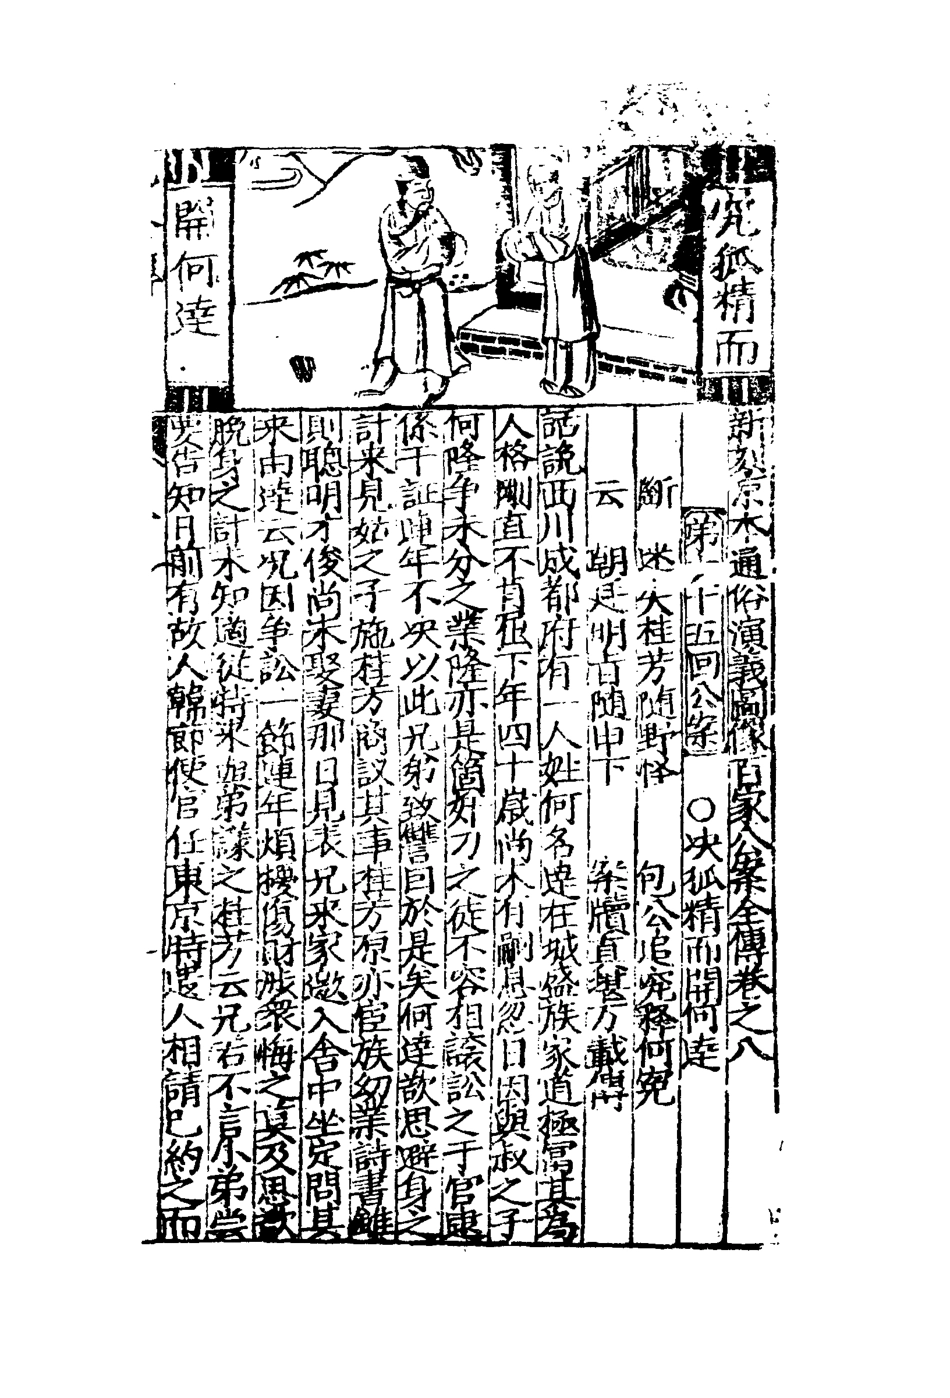 究狐精而
開何達
新刻京本通俗演義圖像百家公案全傳卷之八
第 十五回公案 〇決狐精而開何達
斷 迷失桂芳随野怪 包公追究釋何寃
云 朝廷明百随申下 案牘直 万載傳
話說西川成都府有一人姓何名達在城盛族家道極富其為
人格剛直不肯伹下年四十歲尚未有嗣息忽日因與叔之子
何隆争未分之業隆亦是箇奸刁之徒不容相讓訟之于官連
係干証連年不决以此兄弟致讐曰於是矣何達欲思避身之
計来見姑之子施桂方商議其事桂方原亦宦族幼業詩書雖
則聰明才俊尚未娶妻那日見表兄来家邀入舍中坐定問其
来由達云況因争訟一節連年煩擾傷財 衆悔之莫及思欲
脫身之計未知適從特来與弟議之桂芳云兄若不言小弟嘗
要告知日前有故人韓節使官任東京特遣人相請已約之而